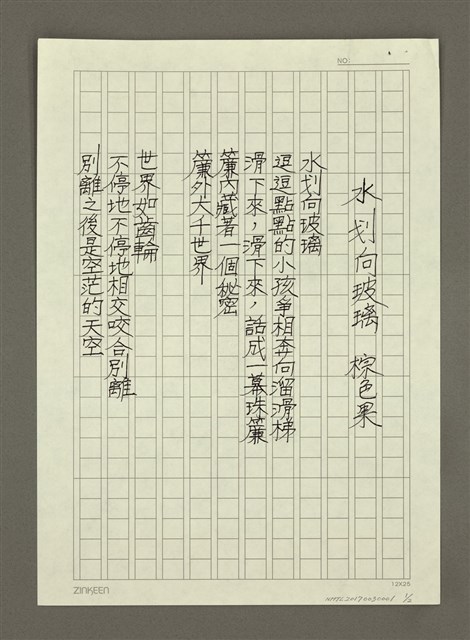 NO:
水划向玻璃　棕色果
水划向玻璃
逗逗點點的小孩爭相奔向溜滑梯
滑下來，滑下來，話成一幕珠簾
簾內藏著一個秘密
簾外大千世界
世界如齒輪
不停地不停地相交咬合別離
別離之後是空茫的天空
ZINKEEN
12X25
1/2